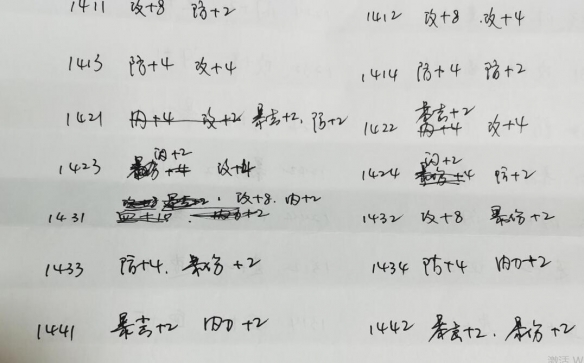 1411 攻+8 防+2 1412 攻+8 .攻+4
1413 防+4 攻+4 1414 防+4 防+2
1421 内+4 攻+2 暴击+2. 防+2 1422 暴击+2 内+4 攻+4
1423 闪+2 暴伤+4 攻+4 1424 闪+2 暴伤+4 防+2
1431 攻+8. 内+2 1432 攻+8 暴伤+2
1433 防+4. 暴伤+2 1434 防+4 内力+2
1441 暴击+2 内力+2 1442 暴击+2. 暴伤+2